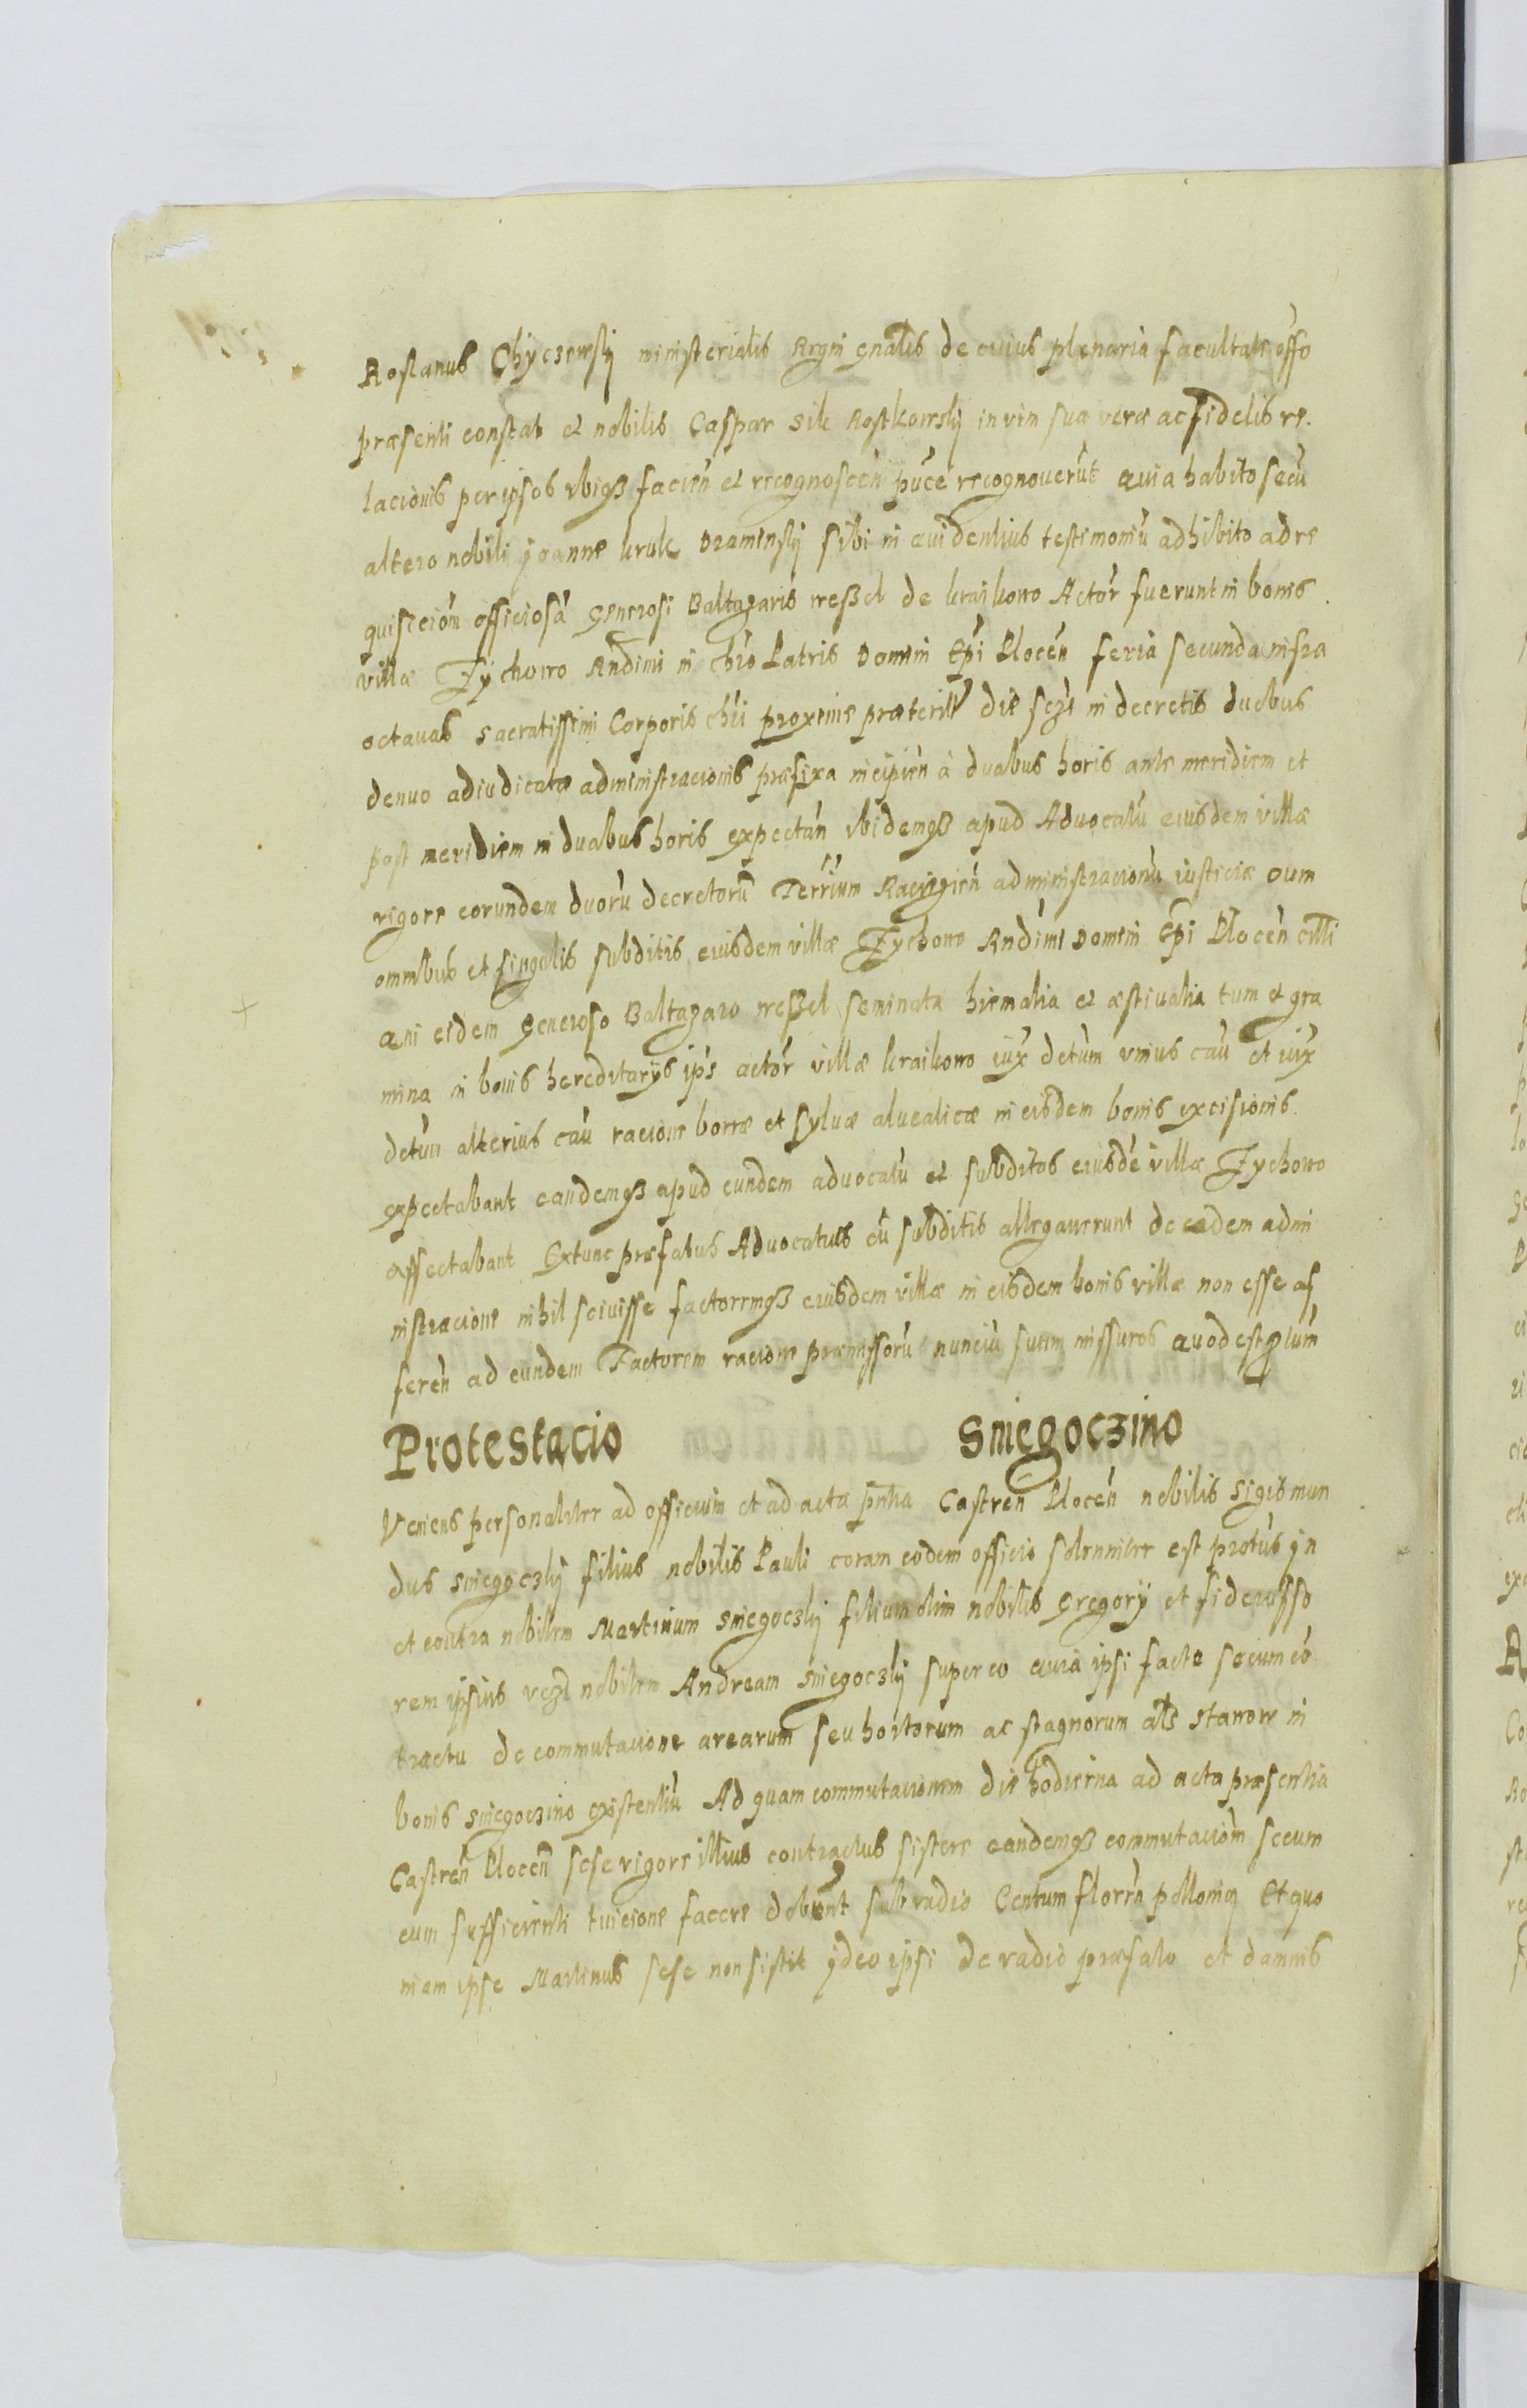 Roslanus Chyczewsky ministerialis Regni gnalis de cuius plenaria facultate offo
præsenti constat et nobilis Caspar Sik Rostkowsky in vim suæ veræ ac fidelis re.
lacionis per ipsos ubiqз facien et recognoscen puce recognoverut Quia habito secu
altero nobili Joanne kruk Draminsky sibi in evidentius testimoniu adhibito ad re
quisicion officiosa Generosi Baltazaris weszel de kraikowo Actor fuerunt in bonis
villæ Zychowo Rndimi in chro Patris Domini Epi Plocen feria secunda infra
octavas sacratissimi Corporis chri proxime præterit die sczt in decretis duobus
denuo adiudicatæ administracionis præfixa incipien à duabus horis ante meridiem et
post meridiem in duabus horis expectan ibidemqз apud Advocatu eiusdem villæ
rigore eorundem duoru decretoru administracionu iusticiæ cum
omnibus et singulis subditis eiusdem villæ Zychowo Rndimi Domini Epi Plocen
eidem Generoso Baltazaro weszel seminata hiemalia et æstivalia tum et gra
mina in bonis hereditarys ips actor villæ kraikowo iux detum unius cau et iux
detum alterius cau racione borræ et sylvæ alvealicæ in eisdem bonis excisionis
expectabant eandemqз apud eundem advocatu et subditos eiusde villæ Zychowo
affectabant Extunc præfatus Advocatus cu subditis allegaverunt de eadem admi
nistracione nihil scivisse factoremqз eiusdem villæ in eisdem bonis villæ non esse af
feren ad eundem Factorem racione præmissoru nunciu suum missuros Quod est
Protestacio Sniegoczino
Veniens personaliter ad officium et ad acta pntia Castren Plocen nobilis Sigismun
dus Sniegoczky filius nobilis Pauli coram eodem officio solenniter est protus in
et contra nobilem Martinum Sniegoczky filium olim nobilis Gregory et fideiusso
rem ipsius nobilem Andream Sniegoczky super eo quia ipsi facto secum co
tractu de commutacione arearum seu hortorum ac stagnorum als stawow in
bonis Sniegoczino existentiu Ad quam commutacionem die hodierna ad acta præsentia
Castren Plocen sese rigore illius contractus sistere eandemqз commutacion secum
cum sufficienti tuicione facere debuit sub vadio Centum floren pollonic Et quo
niam ipse Martinus sese non sistit ideo ipsi de vadio præfato et damnis